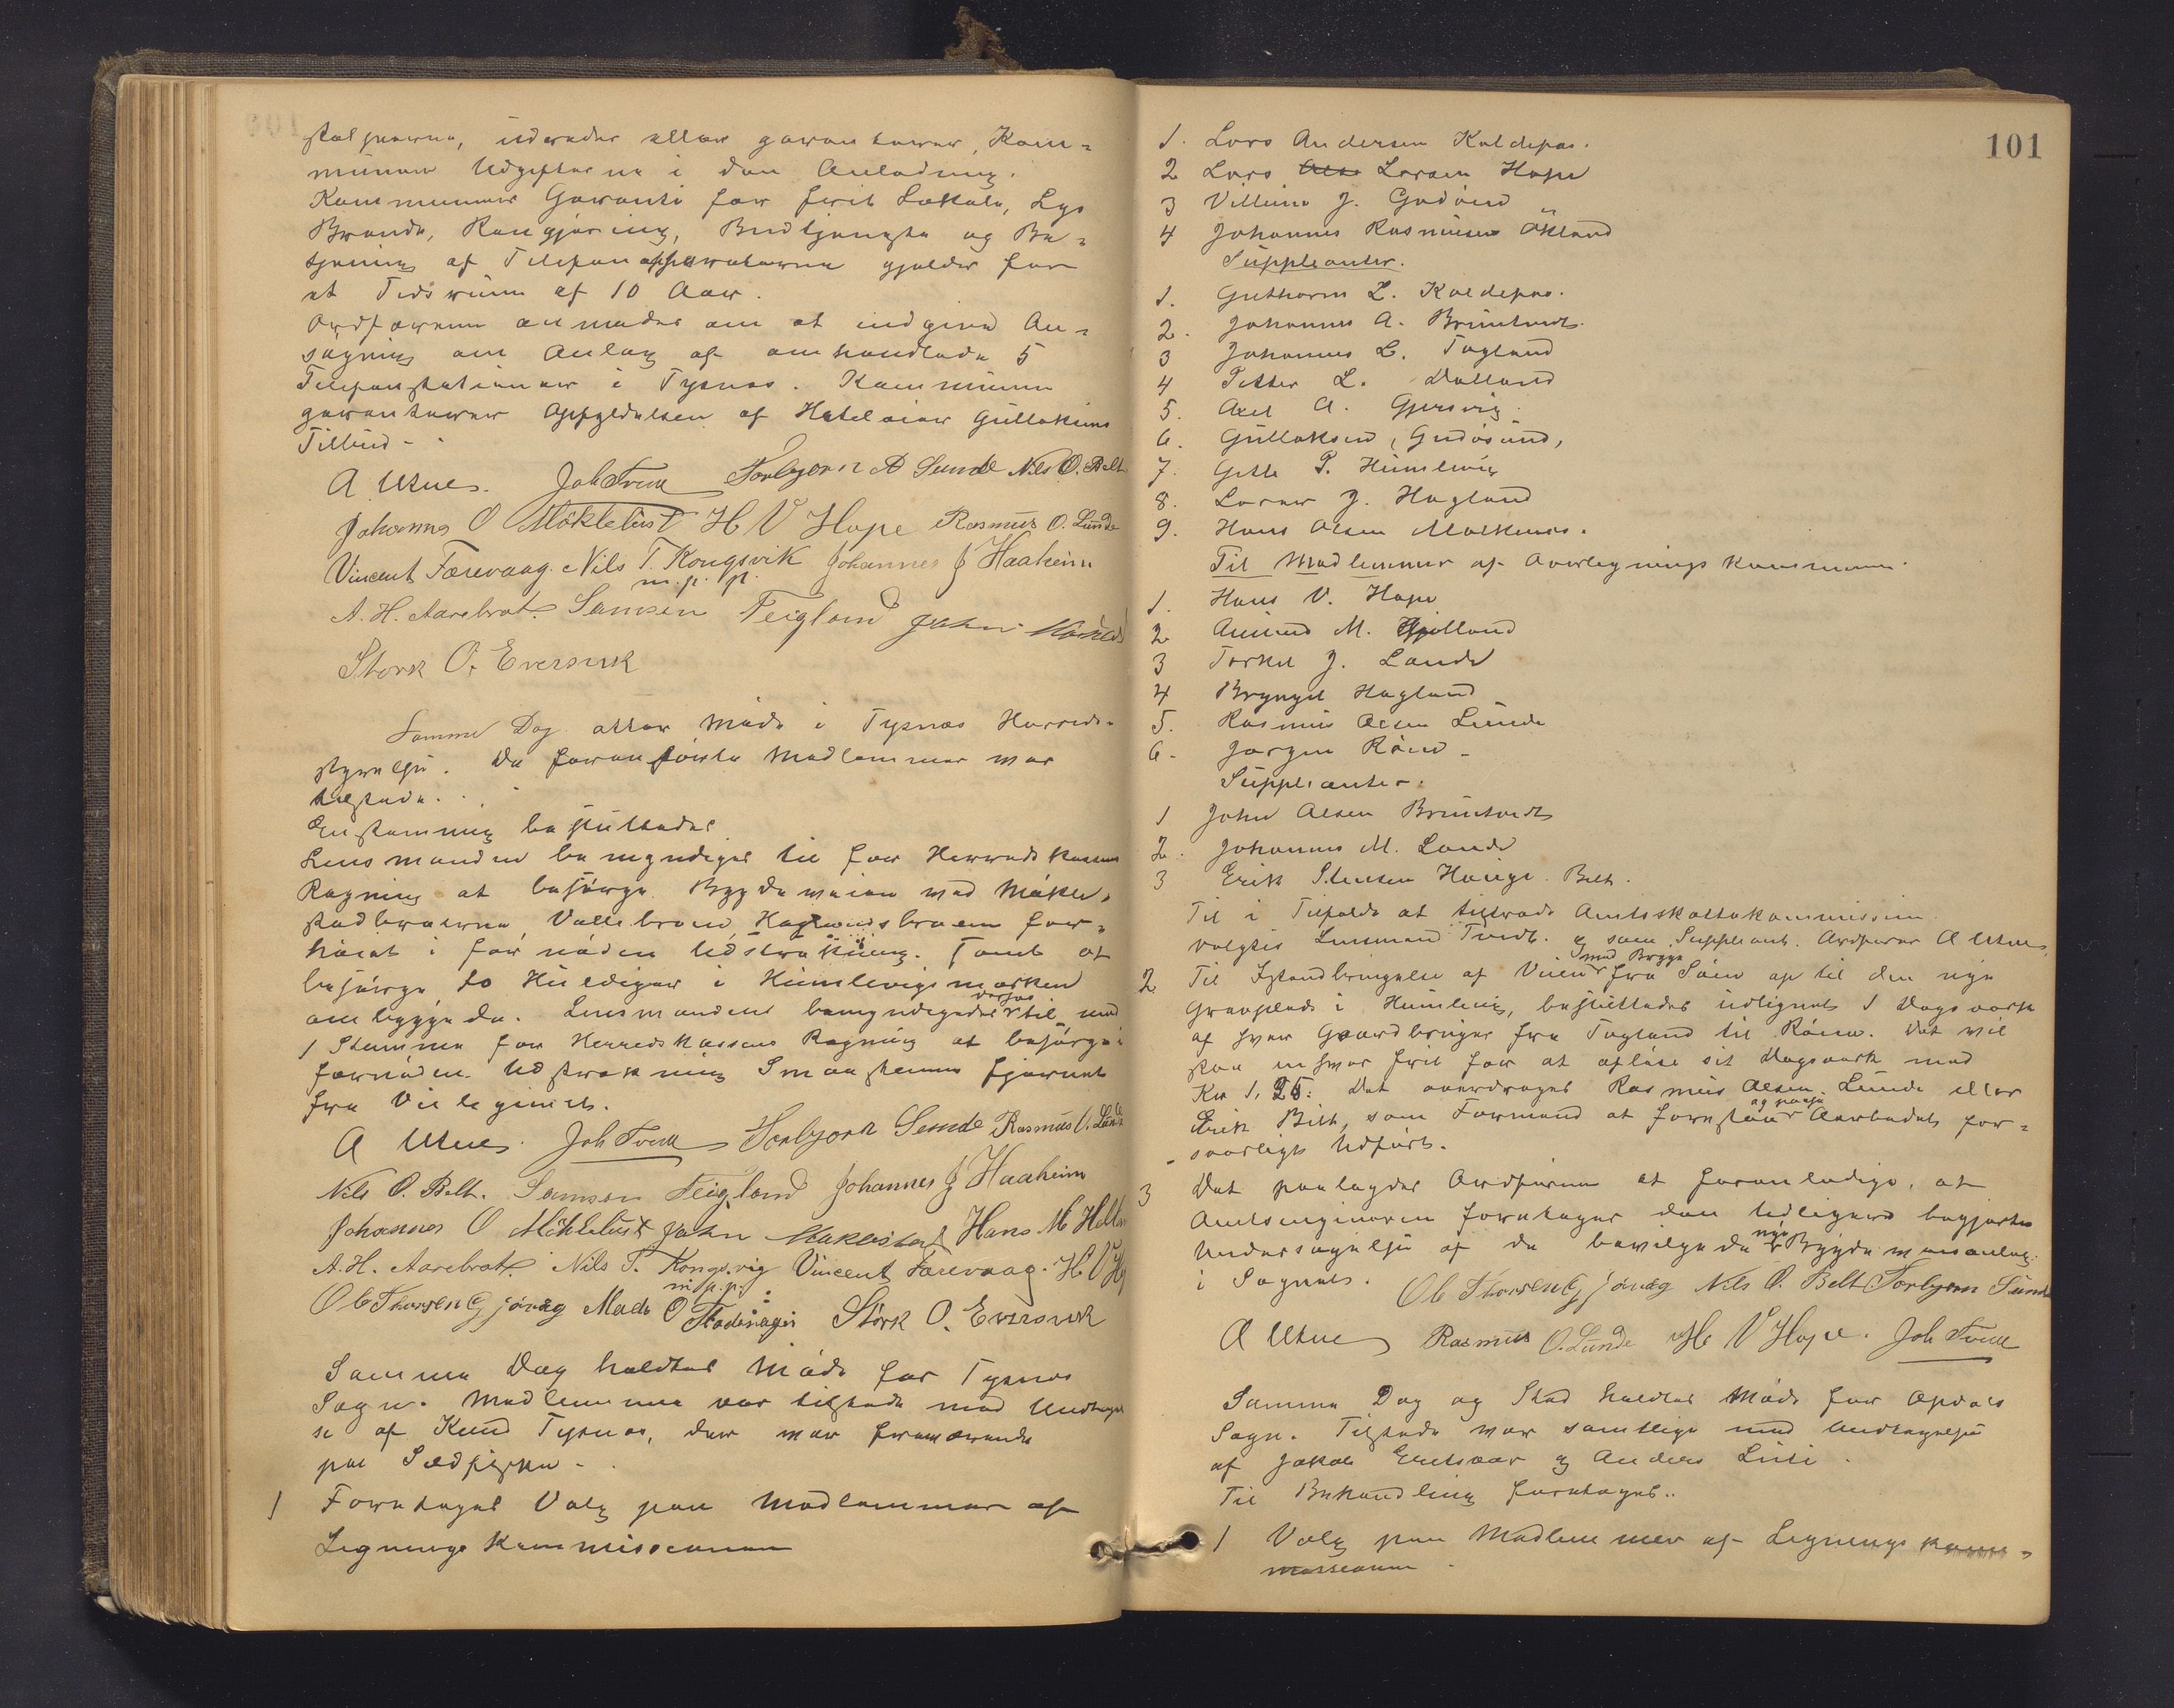 udreder eller garanterer Kom-
munen Udgifterne i den Anledning.
Kommunens Garanti for frit Lokale, Lys
Brænde, Rengjøring, Budtjeneste og Be-
tjening af Telefonapparaterne gjælder for
et Tidsrum af 10 Aar.
Ordføreren anmodes om at indgive An-
søgning om Anlæg af omhandlede 5
Telefonstationer i Tysnes. Kommunen
garanterer Opfyldelsen af Hoteleier Gullaksens
Tilbud -
A Utne. Joh Tveit Torbjørn A Sunde Nils O. Belt
Johannes O Møklebust H V Hope Rasmus O. Lunde
Vincent Færevaag. Nils T. Kongsvik Johannes J Haaheim
m. p. p.
A. H. Aarebrot. Samson Teigland John
Størk O. Eversvik
Samme Dag atter Møde i Tysnes Herreds-
styrelse. De foranførte Medlemmer var
tilstede.
Enstemmig besluttedes
Lensmanden bemyndiges til for Herredskassens
Regning at besørge Bygdeveien ved Møkle-
stadbroerne, Vallebroen, for-
høiet i for nøden Udstrækning. Samt at
besørge to i Humlevigsmarken
ombyggede. Lensmanden bemyndigedes derhos til mod
1 Stemme for Herredskassens Regning at besørge i
fornøden Udstrækning Smaastenene fjernet
fra Veilegemet.
A Utne. Joh Tveit Torbjørn Sunde Rasmus O. Lunde
Nils O. Belt. Samson Teigland Johannes J Haaheim
Johannes O Møklebust John Møklestad Hans M
A. H. Aarebrot. Nils T. Kongsvig Vincent Færevaag. H V
m. p. p.
Ole Thorsen Gjøvåg Mads O Størk O. Eversvik
Samme Dag holdtes Møde for Tysnes
Sogn. Medlemmerne var tilstede med Undtagel
se af Knud Tysnes, der var fraværende
paa Sildfiske -
1 Foretoges Valg paa Medlemmer af
Ligningskommissionen
101
1. Lars Andersen Koldepas.
2 Lars Larsen Hope
3 Villum J. Godøsund
4 Johannes Rasmussen Økland
Suppleanter.
1. Guthorm L. Koldepas.
2. Johannes A. Bruntvedt.
3 Johannes L. Tegland
4 Petter L. Dalland
5. Axel A. Gjersvig.
6. Gullaksen, Godøsund,
7. Gitle P. Humlevig
8. Lars J. Hagland
9. Hans Olsen Malkenes.
Til Medlemmer af Overlignings Kommissionen.
1. Hans V. Hope
2 Amund M.
3 Torkel J. Lande
4 Brynjel Hagland
5. Rasmus Olsen Lunde
6. Jørgen Røen -
Suppleanter.
1 John Olsen Bruntvedt
2. Johannes M. Lande
3 Erik Stensen Hauge Belt.
Til i Tilfælde at tiltræde Amtsskattekommissionen
valgtes Lensmand Tveit. og som Suppleant. Ordfører A Utne
med Brygge
2. Til Istandbringelse af Veien fra Søen op til den nye
Gravplads i Humlevig, besluttedes udlignet 1 Dagsværk
af hver Gaardbruger fra Tegland til Røen. Det vil
staa enhver frit for at afløse sit Dagsværk med
Kr 1,25. Det overdroges Rasmus Olsen Lunde eller
Erik Belt, som Formand at forestaa og paase Arbeidet for-
svarligt Udført.
3 Det paalægges Ordføreren at foranledige, at
Amtsingeniøren foretager den tidligere begjærte
Undersøgelse af de bevilgede nye Bygdeveianlæg
i Sognet. Ole Thorsen Gjøvåg Nils O. Belt Torbjørn Sunde
A Utne Rasmus O. Lunde H V Hope. Joh Tveit
Samme Dag og Sted holdtes Møde for Opdals
Sogn. Tilstede var samtlige med Undtagelse
af Jakob og Anders Lies.
Til Behandling foretoges..
1 Valg paa Medlemmer af Lignings kom-
missionen.